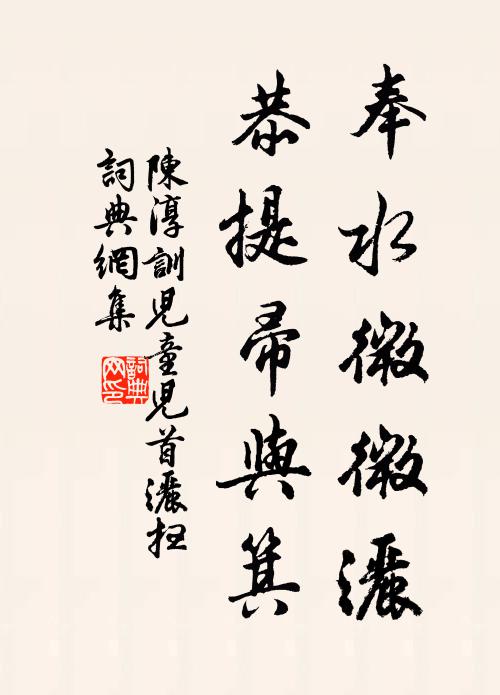 奉水微微灑
恭提帚與箕
陳淳訓兒童児首灑扫
詞典網集
詞典網印